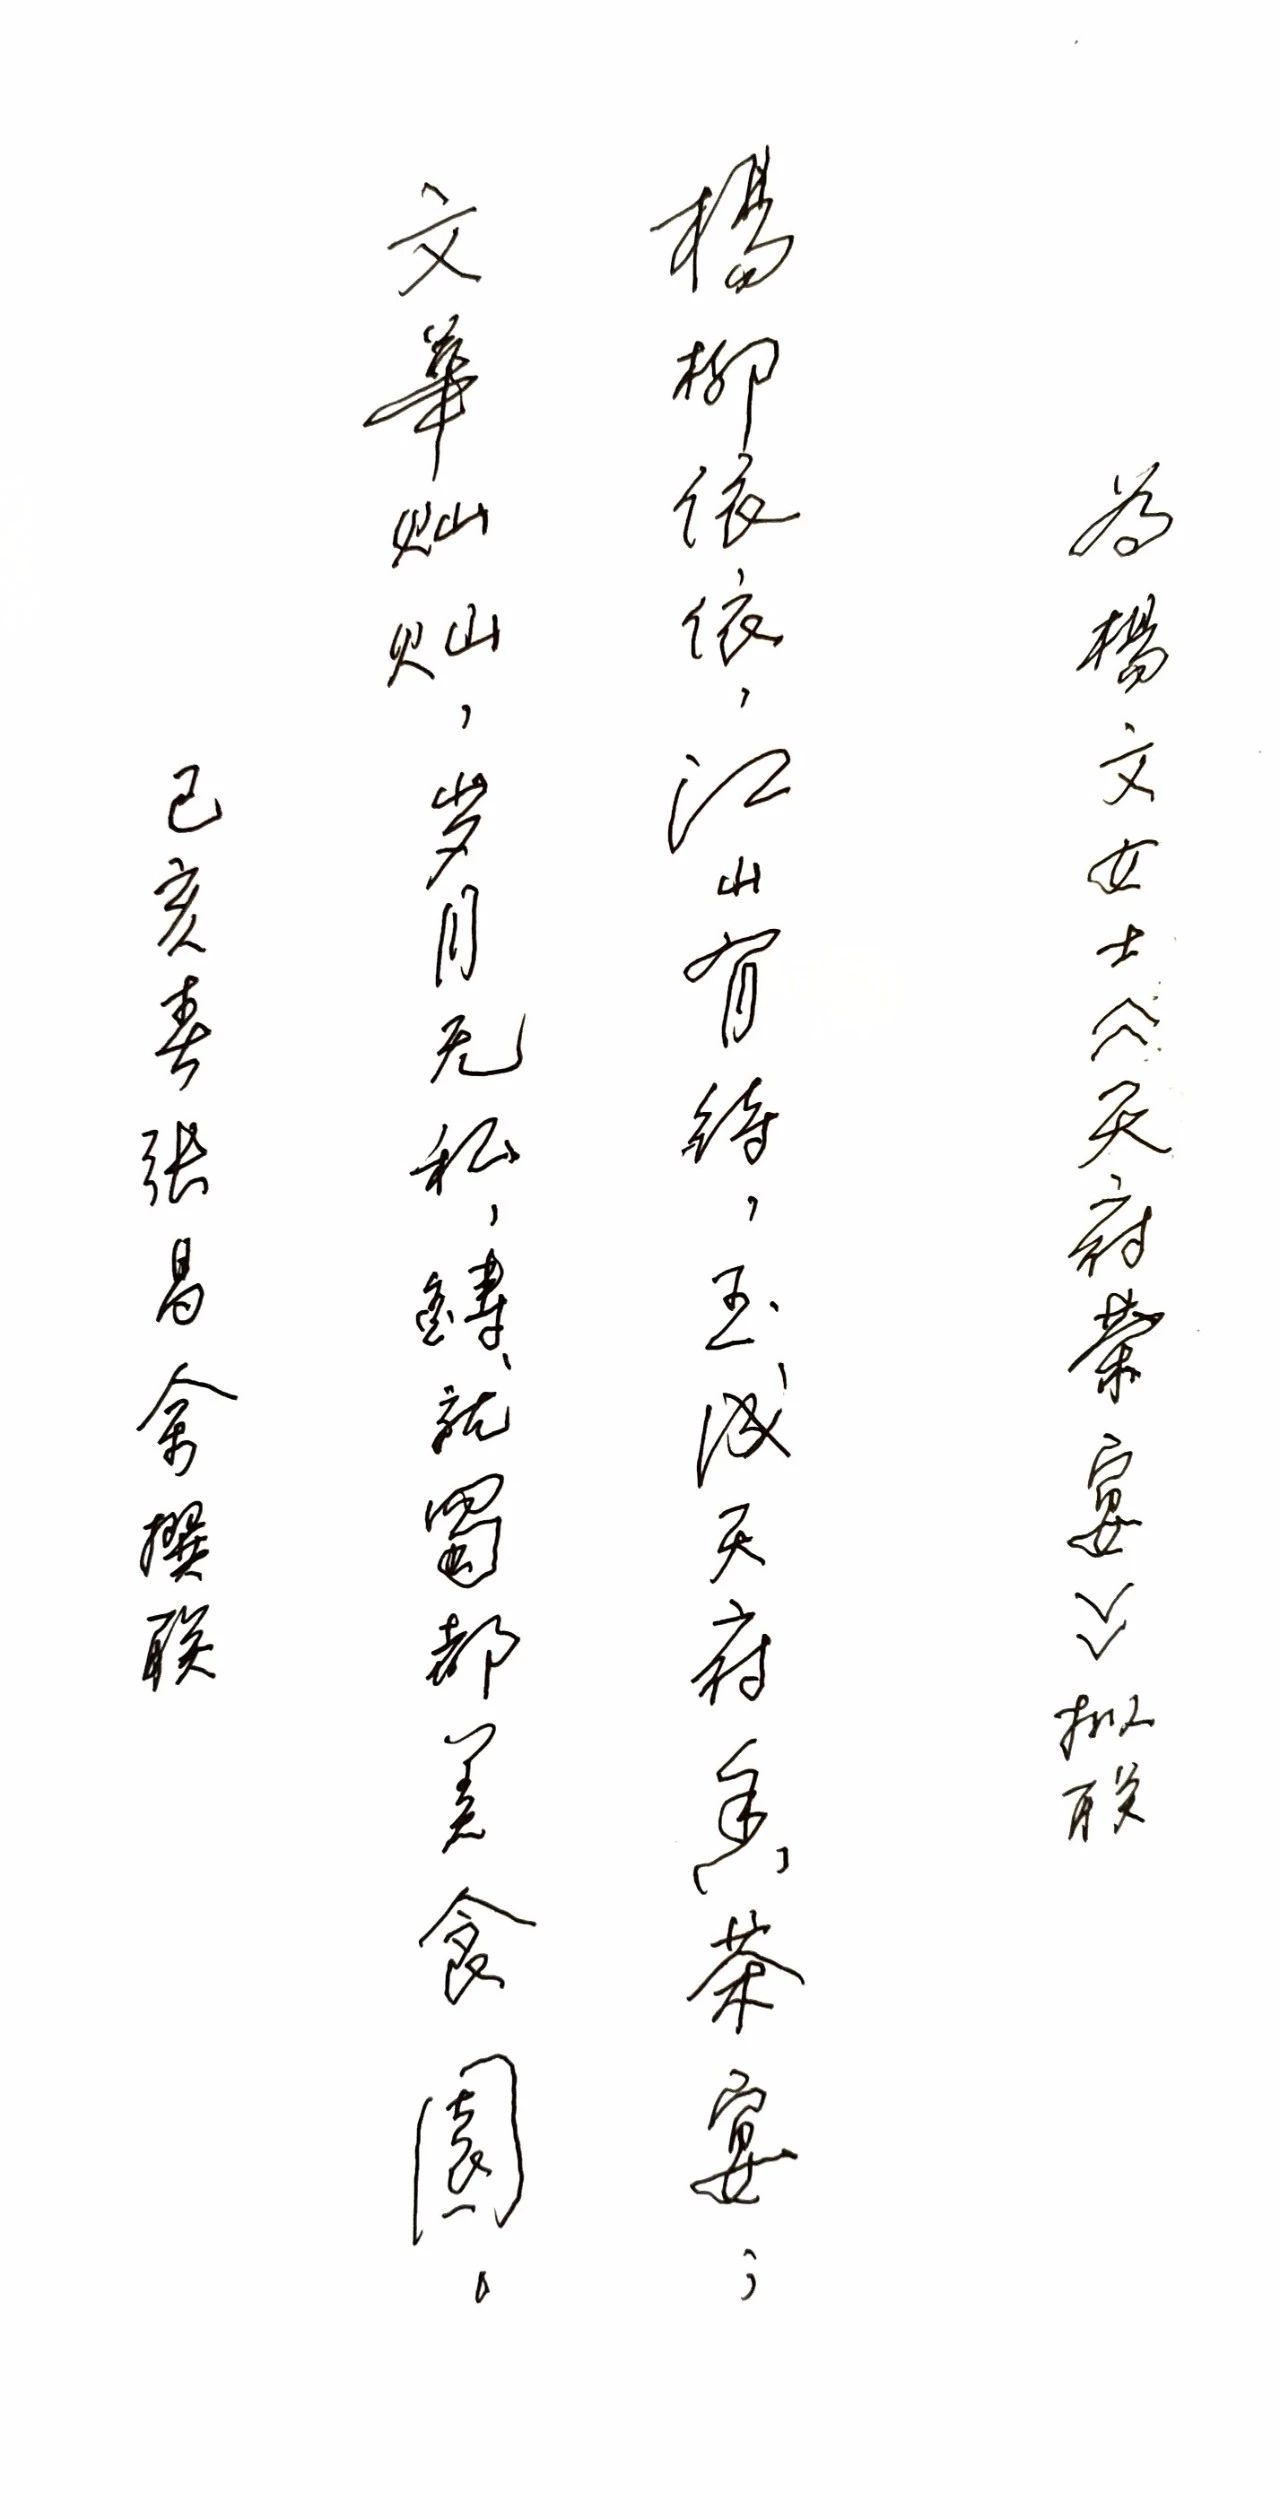 为楊文女士《天府茶宴》拟联
楊柳依依，江山有待，玉成天府香茶宴；
文華灿灿，岁月无私，鑄就蜀都美食園。
己亥春张昌余撰联